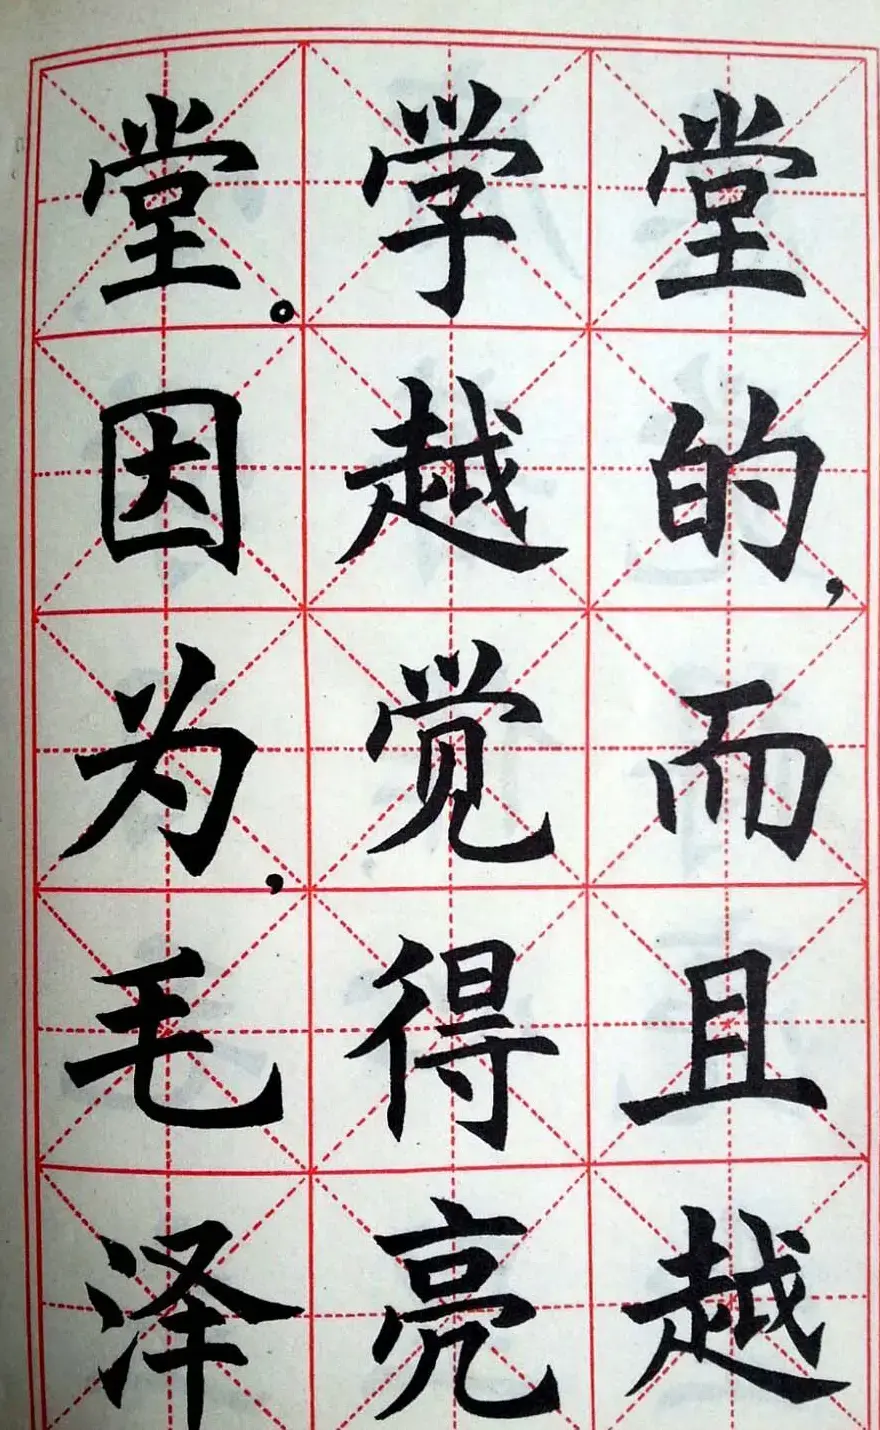 堂的，而且越
学越觉得亮
堂。因为，毛泽